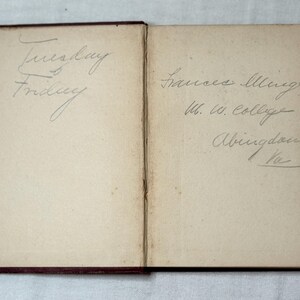 Tuesday
&
Friday
Frances Ming
M. W. College
Abingdon
Va